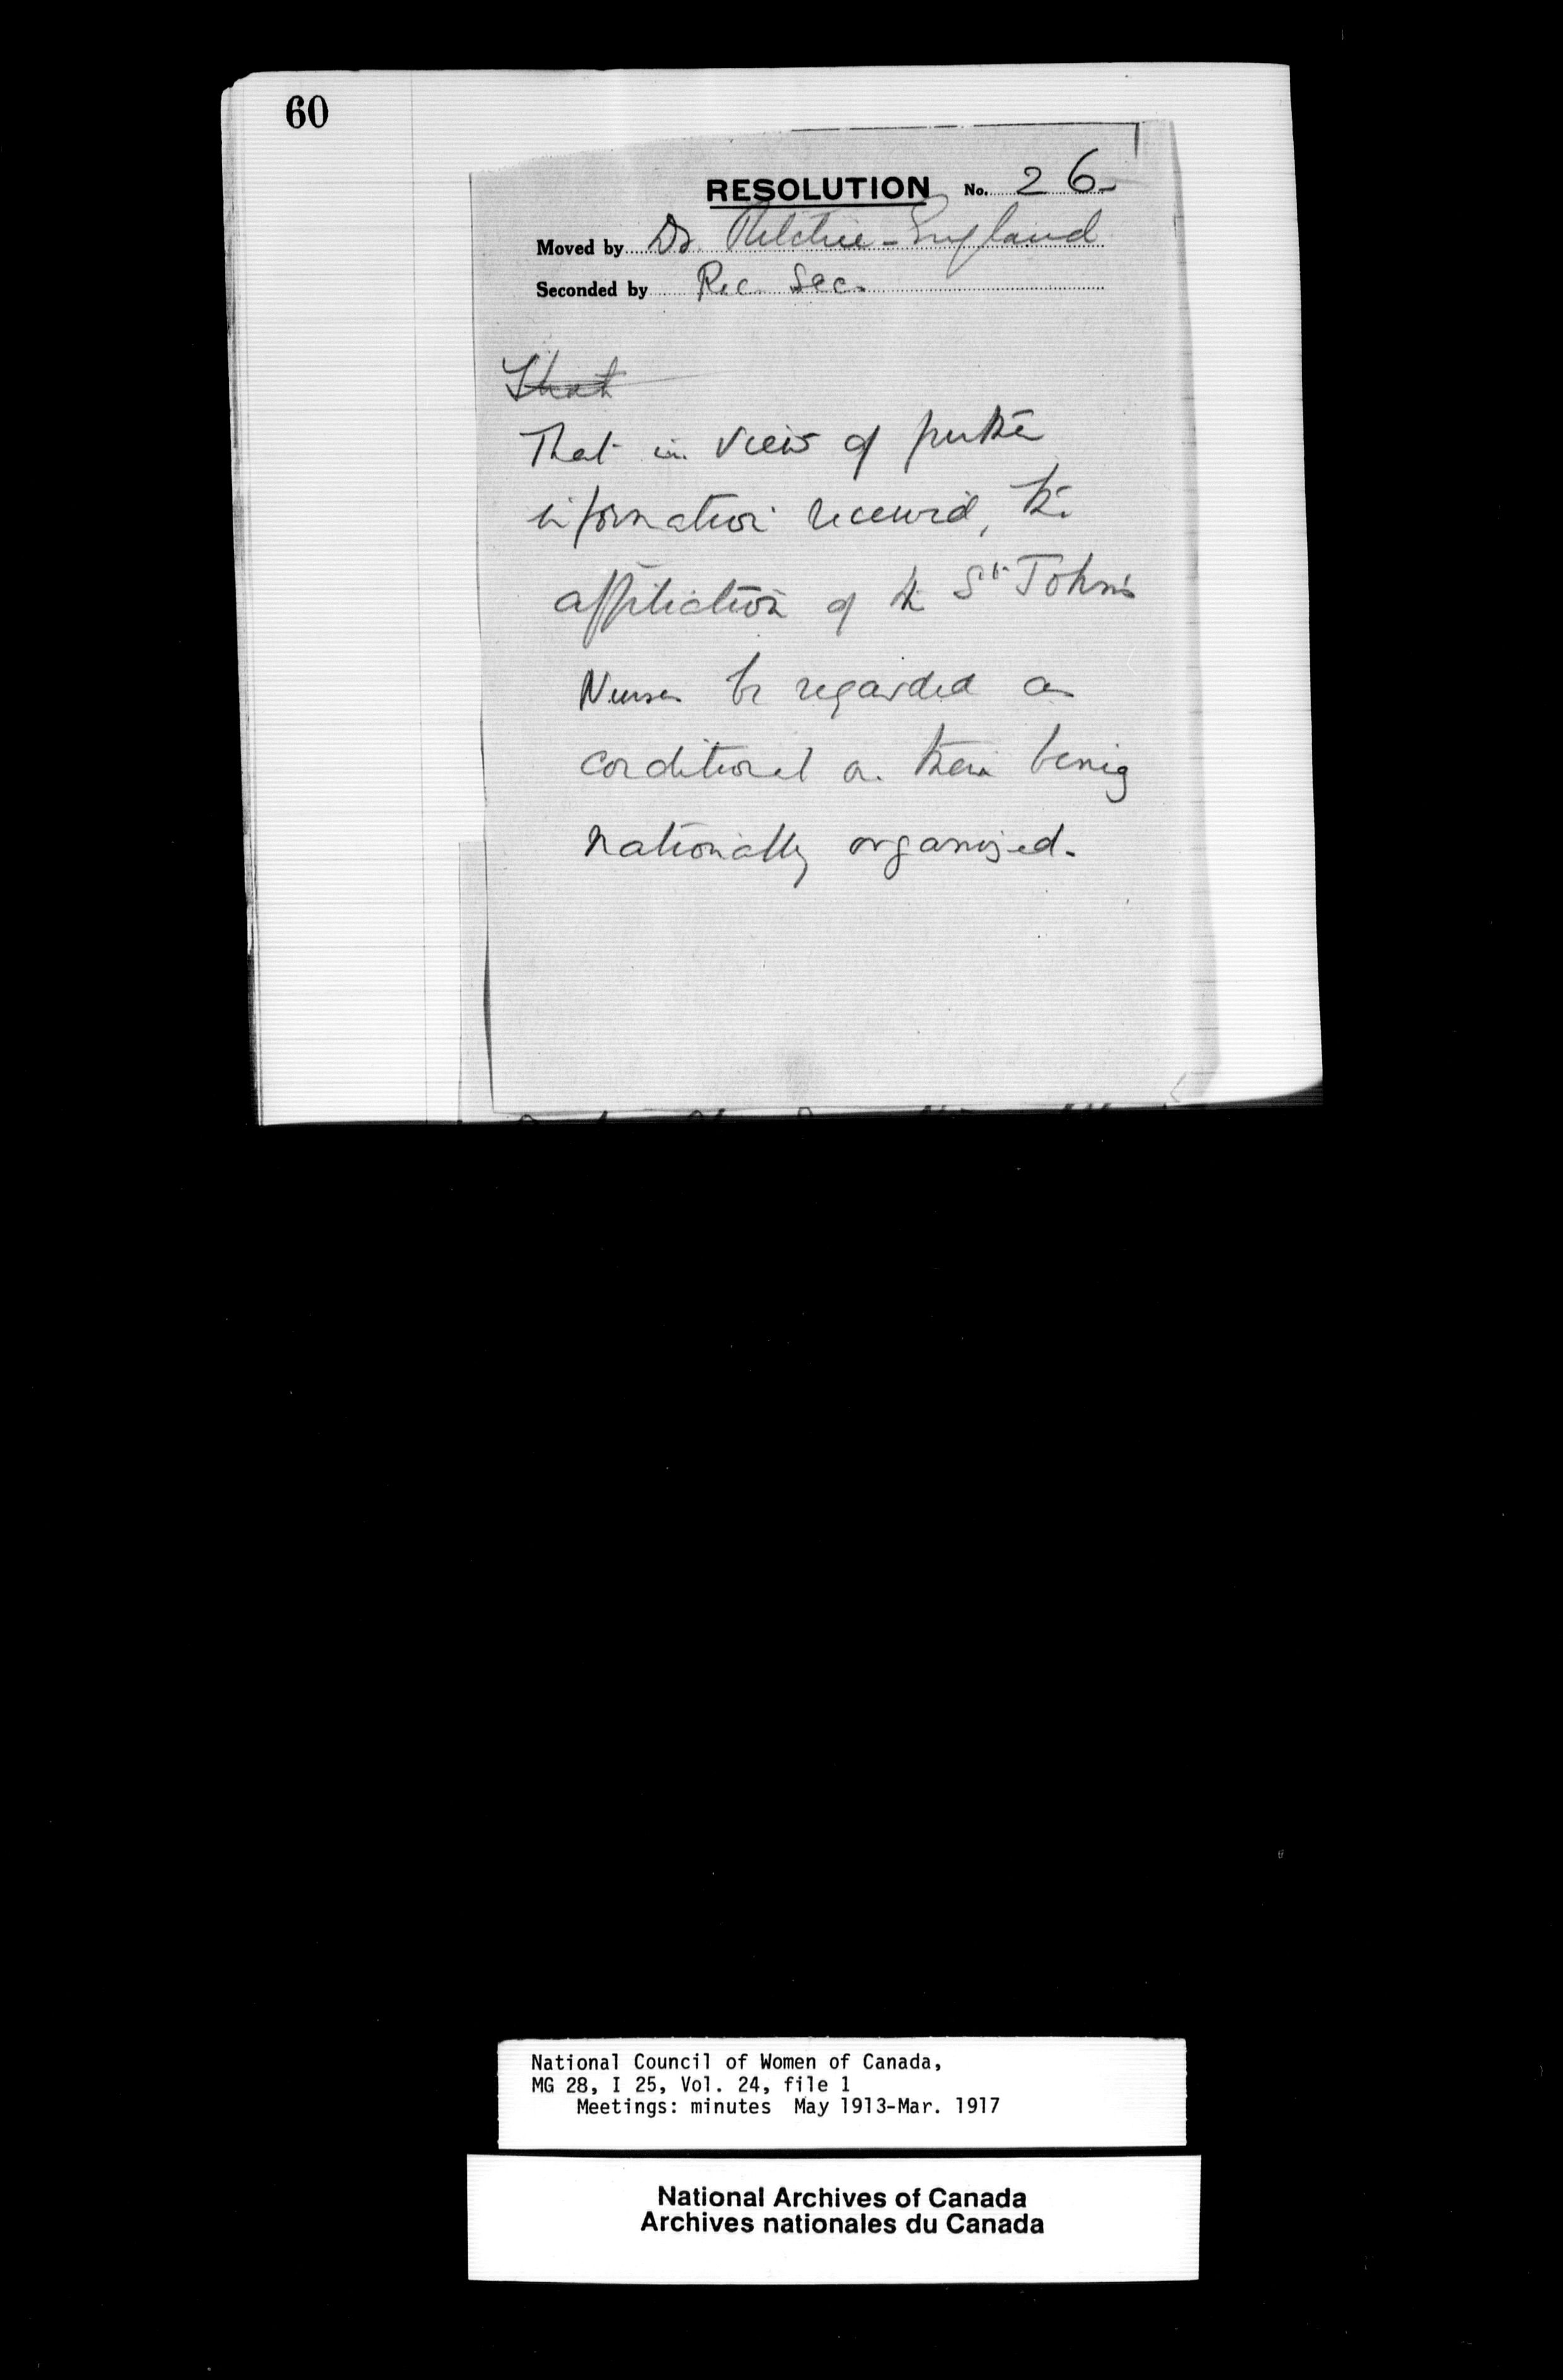 60
RESOLUTION No. 26.
Moved by Dr. Ritchie-England
Seconded by Rec. Sec.
That
That in view of further
information received, the
affiliation of the St. John's
Nurses be regarded as
conditional on their being
nationally organized.
National Council of Women of Canada,
MG 28, I 25, Vol. 24, file 1
Meetings: minutes May 1913-Mar. 1917
National Archives of Canada
Archives nationales du Canada